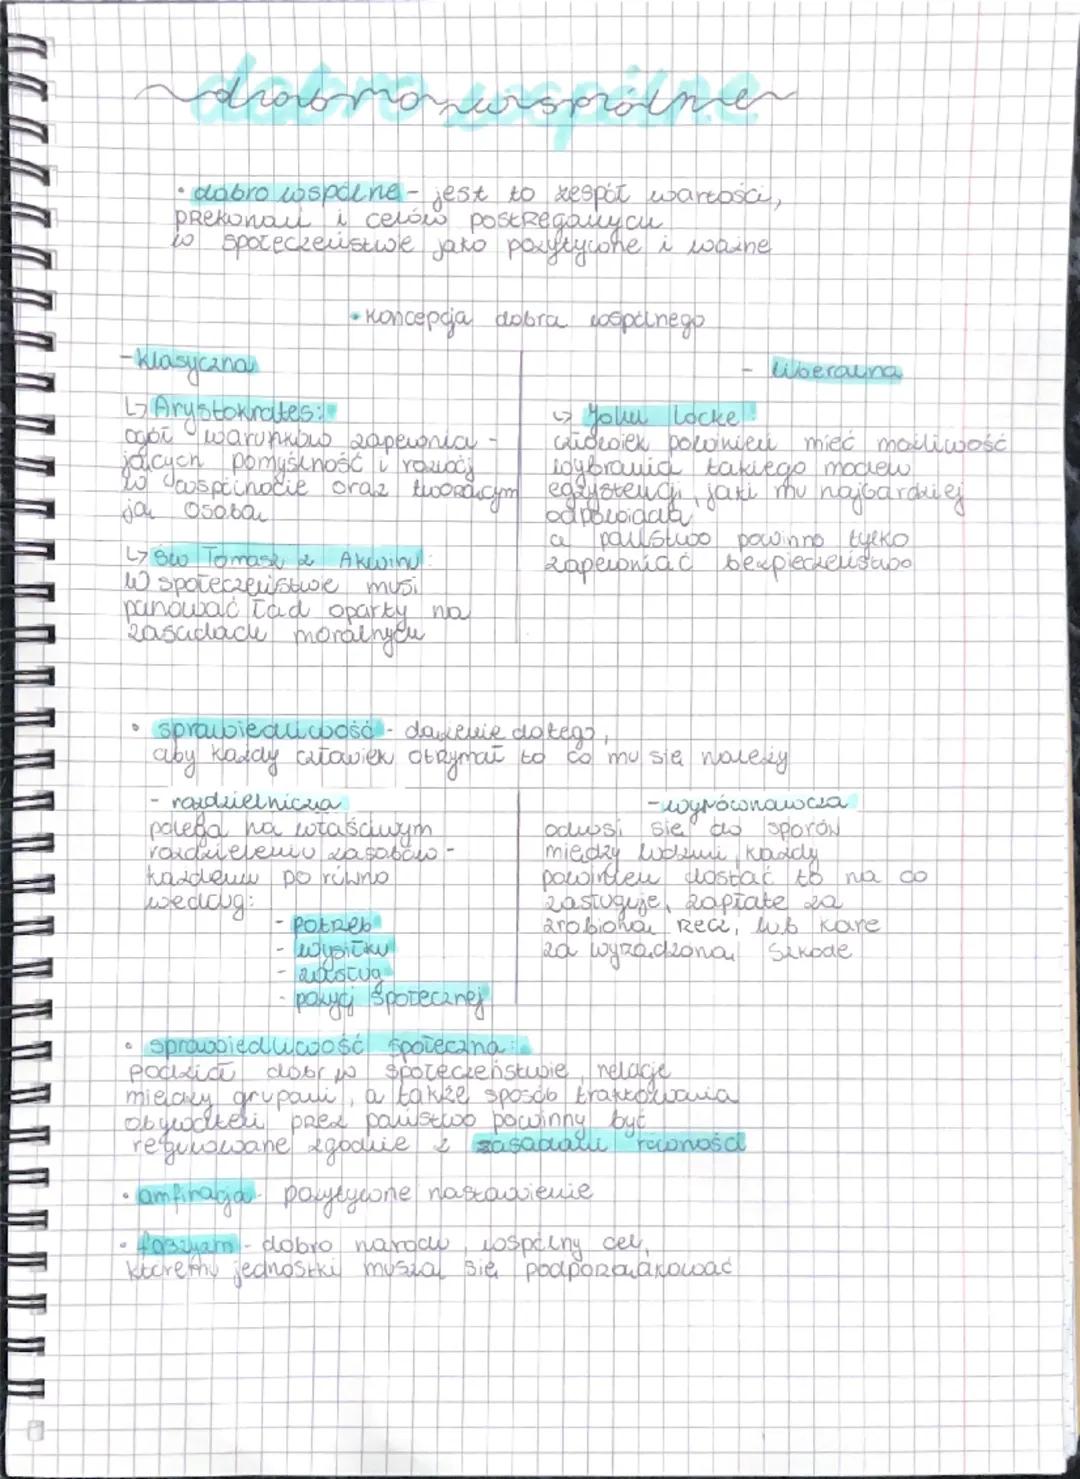 dobro wspólne
• dobro wspólne - jest to zespół wartości,
przekonań i celów postrzeganych
w społeczeństwie jako pozytywne i ważne
• koncepcja dobra wspólnego
- klasyczna
↳ Arystokrates:
ogół warunków zapewnia-
jących pomyślność i rozwój
w wspólnocie oraz tworzącym
ją osobą
↳ św Tomasz z Akwinu:
W społeczeństwie musi
panować ład oparty na
zasadach moralnych
- liberalna
↳ John Locke:
człowiek powinien mieć możliwość
wybrania takiego modelu
egzystencji, jaki mu najbardziej
odpowiada
a państwo powinno tylko
zapewniać bezpieczeństwo
• sprawiedliwość - dążenie do tego,
aby każdy człowiek otrzymał to co mu się należy
- rozdzielnicza
polega na właściwym
rozdzieleniu zasobów -
każdemu po równo
według:
- potrzeb
- wysiłku
- zasług
- pozycji społecznej
- wyrównawcza
odnosi się do sporów
między ludźmi, każdy
powinien dostać to na co
zasługuje, zapłatę za
zrobioną rzecz, lub karę
za wyrządzoną szkodę
• sprawiedliwość społeczna:
podział dóbr w społeczeństwie, relacje
między grupami, a także sposób traktowania
obywateli przez państwo powinny być
regulowane zgodnie z zasadami równości
• amfiracja - pozytywne nastawienie
• faszyzm - dobro narodu, wspólny cel,
któremu jednostki muszą się podporządkować